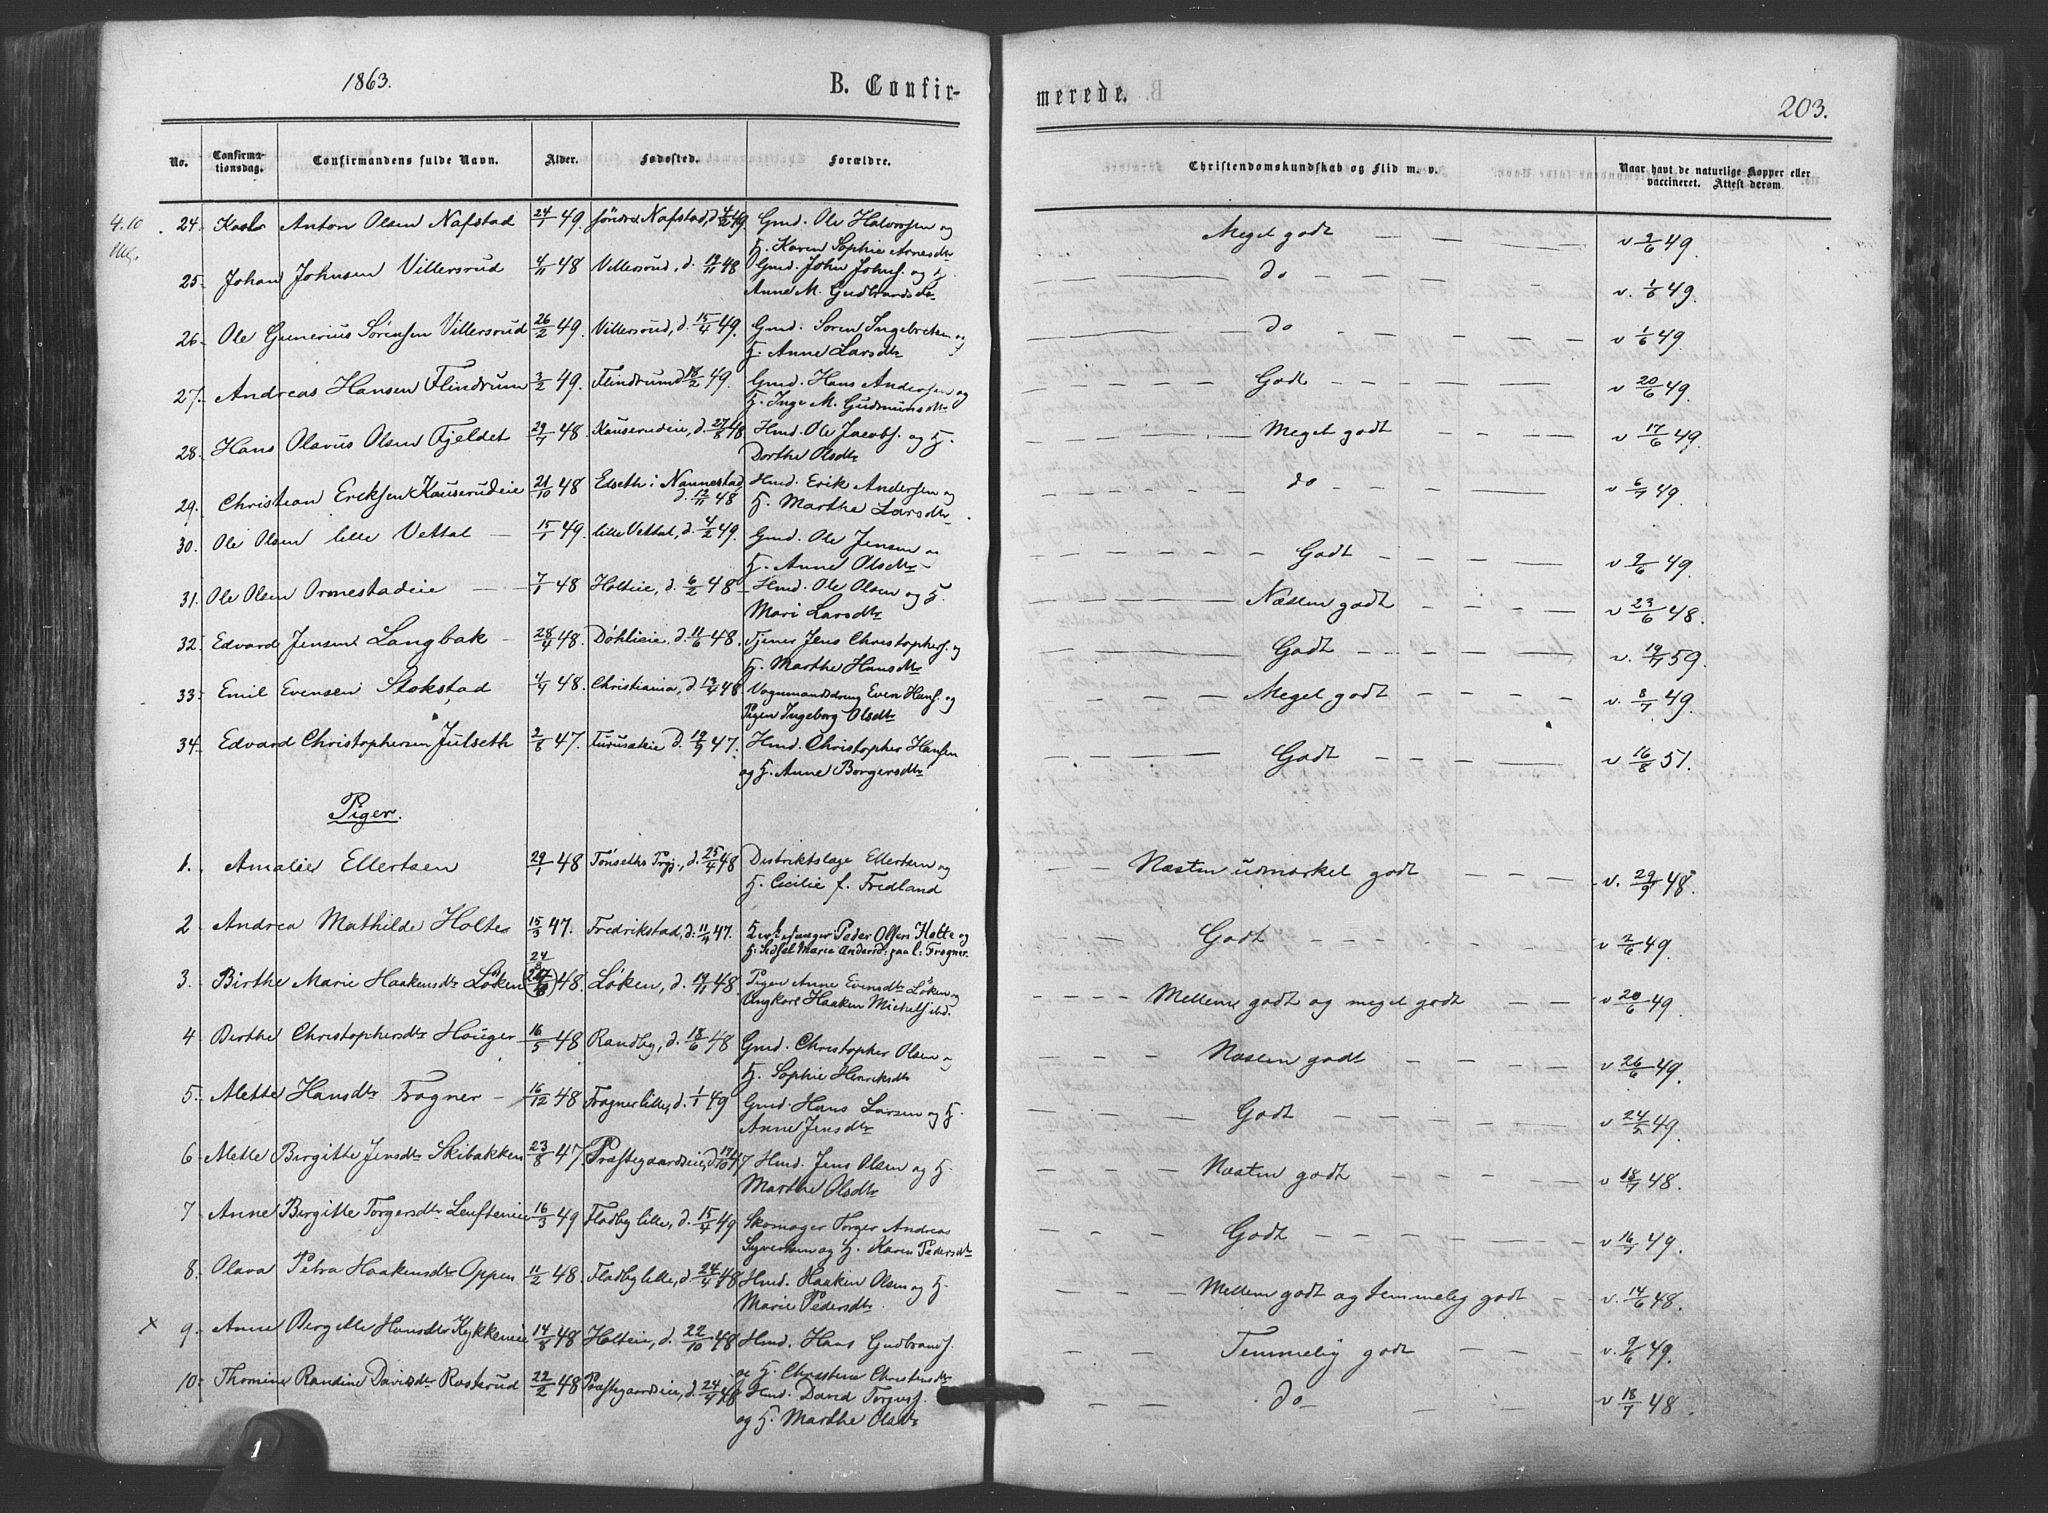 1863.
B. Confir-
merede.
203.
No.
Confirma-
tionsdag.
Confirmandens fulde Navn.
Alder.
Fødested.
Forældre.
Christendomskundskab og Flid m. v.
Naar havt de naturlige Kopper eller
vaccineret. Attest derom.
4.10
24. Karl Anton Olsen Nafstad 24/1 49 søndre Nafstad, d. 4/2 49 Gmd. Ole Halvorsen og Meget godt v 2/6 49.
H. Karen Sophie Arnesdtr
25. Johan Johnsen Villersrud 4/11 48 Villersrud, d. 19/11 48 Gmd. John Johns. og H. do v. 1/6 49.
Anne M. Gudbrandsdr
26. Ole Gunerius Sørensen Villersrud 26/2 49. Villersrud, d. 15/4 49. Gmd. Søren Ingebretsen og do v 1/6 49.
H. Anne Larsdtr
27. Andreas Hansen Flindrum 3/2 49. Flindrum d 18/2 49. Gmd. Hans Andersen og Godt v 20/6 49.
H. Inge M. Gudmunsdtr
28. Hans Olavus Olsen Fjeldet 29/7 48 Kauserudeie, d. 27/8 48 Hmd. Ole Jacobs. og H. Meget godt v 17/6 49.
Dorthe Olsdtr
29. Christian Eriksen Kauserudeie 21/10 48 Edseth i Nannestad Hmd. Erik Andersen og do v 6/7 49.
d. 12/11 48 H. Marthe Larsdtr
30. Ole Olsen lille Vettal 15/1 49. lille Vettal, d. 4/2 49. Gmd. Ole Jensen og Godt v 2/6 49.
H. Anne Olsdtr
31. Ole Olsen Ornestadeie 7/1 48 Holteie, d. 6/2 48 Hmd. Ole Olsen og H. Næsten godt v 23/6 48.
Mari Larsdtr
32. Edvard Jensen Langbak 28/4 48. Døhlieie, d. 11/6 48. Tjener Jens Christophers. og Godt v. 19/7 59.
H. Marthe Hansdtr
33. Emil Evensen Stokstad 4/4 48. Christiania, d. 13/4 48 Vognmandsdreng Even Hans. og Meget godt v. 8/7 49.
Pigen Ingeborg Olsdtr
34. Edvard Christophersen Julseth 2/8 47. Furusæeie d. 19/9 47. Hmd. Christopher Hansen Godt v 16/8 51.
og H. Anne Borgersdtr
Piger.
1. Amalie Ellertsen 29/1 48 Tønseths Prgj., d. 25/4 48 Distriktslæge Ellertsen og Næsten udmærket godt v. 29/9 48.
H. Cecilie f. Fredland
2 Andrea Mathilde Holter 15/3 47. Fredrikstad, d. 11/4 47. Peder Olsen Holte og Godt v 2/6 49.
H. Sidsel Marie Andersd: paa l: Frogner.
24/8
3. Birthe Marie Haakensdtr Løken 48. Løken, d. 19/11 48 Pigen Anne Evensdtr Løken og Mellem godt og meget godt v 20/6 49.
Ungkarl Haaken Michels. ibd.
4 Birthe Christophersdtr Houger 16/5 48 Randby, d. 18/6 48 Gmd. Christopher Olsen og Næsten godt v 26/6 49.
H. Sophie Henriksdtr
5. Mette Hansdtr Frogner 16/12 48 Frogner lille, d. 1/1 49 Gmd. Hans Larsen og H. Godt v 24/5 49.
Anne Jensdtr
6 Mette Birgitte Jensdtr Skibakken 23/8 47 Præstegaardseie, d. 17/10 47 Hmd. Jens Olsen og H. Næsten godt v 18/7 48.
Marthe Olsdtr
7 Anne Birgitte Torgersdtr 16/3 49 Fladby lille, d. 15/4 49 Skomager Torger Andreas Godt v 16/7 49.
Syvertsen og H. Karen Pedersdtr
8. Olava Petra Haakensdtr Oppen 11/2 48. Fladby lille, d. 24/4 48 Hmd. Haaken Olsen og H. Mellem godt og temmelig godt v. 14/6 48.
Marie Pedersdtr.
x 9. Anne Birgitte Hansdtr Kykkeneie 14/8 48 Holteie, d. 22/10 48 Hmd. Hans Gudbrands. Temmelig godt v. 2/6 49.
og H. Christine Christensdtr
10. Thomine Randine Davidsdtr Rosterud 22/2 48 Præstegaardseie, d. 24/4 48 Hmd. David Torgers. do v 18/7 48.
og H. Marthe Olsdtr